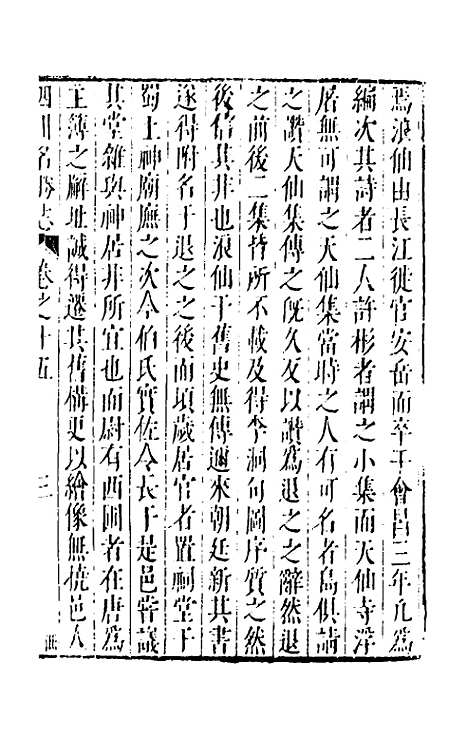 焉浪仙由長江徙官安岳而卒于會昌三年凡爲
編次其詩者二人許彬者謂之小集而天仙寺浮
屠無可謂之天仙集當時之人有可名者島俱請
之讚天仙集傳之旣久友以讚爲退之之辭然退
之前後二集皆所不載及得李洞句圖序質之然
後信其非也浪仙于舊史無傳邇來朝廷新其書
遂得附名于退之之後而頃歲居官者置祠堂于
蜀土神廟廡之次令伯氏實佐令長于是邑嘗議
其堂雜與神居非所宜也而尉有西圃者在唐爲
主簿之廨址誠得遷其舊構更以繪像無撓邑人
四川名勝志 卷之十五 三